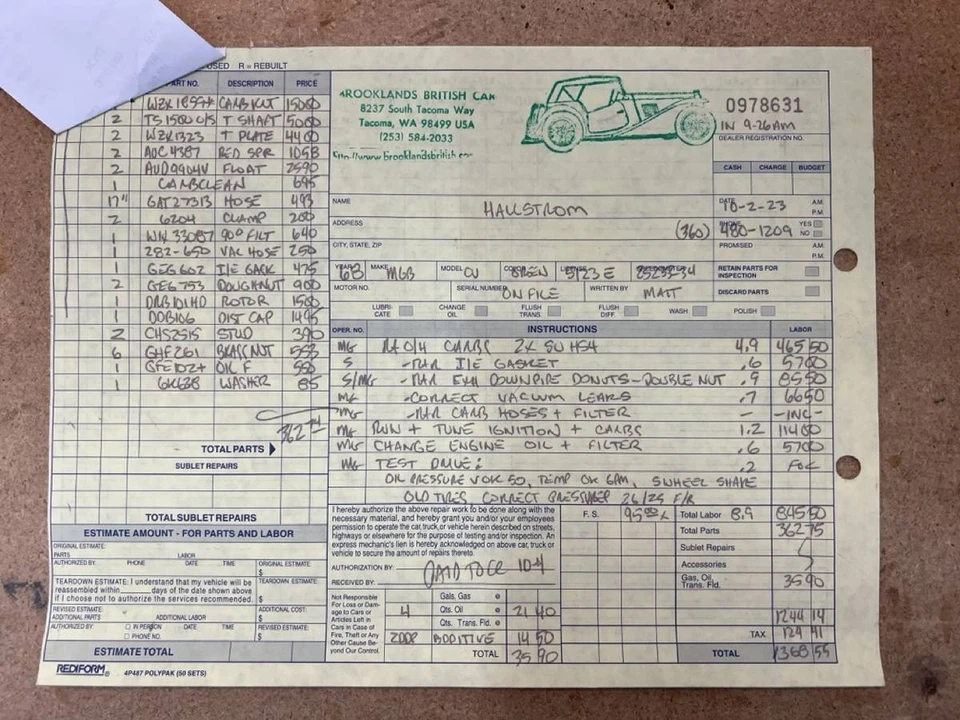 USED R = REBUILT
PART NO. DESCRIPTION PRICE
CARB KIT 15000
2 TS1500 O/S T SHAFT 5000
2 WZK1323 T PLATE 4400
2 AUC4387 RED SPR 1058
2 FLOAT 2590
1 CARBCLEAN 695
17" GAT27313 HOSE 493
2 6204 CLAMP 200
1 90° FILT 640
1 282-650 VAC HOSE 250
1 GEG602 I/E GASK 475
2 GEG753 DOUGHNUT 900
1 DRB101HD ROTOR 1500
1 DDB106 DIST CAP 1495
2 CHS2515 STUD 390
6 GHF261 BRASS NUT
1 OIL F 550
1 6K638 WASHER 85
362 74
TOTAL PARTS
SUBLET REPAIRS
TOTAL SUBLET REPAIRS
ESTIMATE AMOUNT - FOR PARTS AND LABOR
ORIGINAL ESTIMATE:
PARTS LABOR
AUTHORIZED BY: PHONE DATE TIME ORIGINAL ESTIMATE
$
TEARDOWN ESTIMATE: I understand that my vehicle will be
reassembled within days of the date shown above
if I choose not to authorize the services recommended.
TEARDOWN ESTIMATE:
$
REVISED ESTIMATE:
ADDITIONAL PARTS ADDITIONAL LABOR
ADDITIONAL COST:
$
AUTHORIZED BY: IN PERSON DATE TIME
PHONE NO.
REVISED ESTIMATE
$
ESTIMATE TOTAL
REDIFORM® 4P487 POLYPAK (50 SETS)
BROOKLANDS BRITISH CAR
8237 South Tacoma Way
Tacoma, WA 98499 USA
(253) 584-2033
http://www.brooklandsbritish.com
0978631
IN 9-26AM
DEALER REGISTRATION NO.
CASH CHARGE BUDGET
NAME HALLSTROM
DATE 10-2-23 A.M.
P.M.
ADDRESS
(360) 480-1209
PHONE YES
NO
CITY, STATE, ZIP
PROMISED A.M.
P.M.
YEAR 68 MAKE MGB MODEL CV GREEN
RETAIN PARTS FOR
INSPECTION
MOTOR NO. SERIAL NUMBER ON FILE WRITTEN BY MATT
DISCARD PARTS
LUBRI-CATE CHANGE OIL FLUSH TRANS. FLUSH DIFF. WASH POLISH
OPER. NO. INSTRUCTIONS LABOR
MG R+O/H CARBS 2X SU HS4 4.9 46550
S -R+R I/E GASKET .6 5700
S/MG -R+R EXH DOWNPIPE DONUTS-DOUBLE NUT .9 8550
MG -CORRECT VACUUM LEAKS .7 6650
MG -R+R CARB HOSES + FILTER - -INC-
MG RUN + TUNE IGNITION + CARBS 1.2 11400
MG CHANGE ENGINE OIL + FILTER .6 5700
MG TEST DRIVE: .2 FOC
OIL PRESSURE VOK 50, TEMP OK 6PM, SWHEEL SHAKE
OLD TIRES, CORRECT PRESSURES 26/25 F/R
I hereby authorize the above repair work to be done along with the
necessary material, and hereby grant you and/or your employees
permission to operate the car, truck, or vehicle herein described on streets,
highways or elsewhere for the purpose of testing and/or inspection. An
express mechanic's lien is hereby acknowledged on above car, truck or
vehicle to secure the amount of repairs thereto.
AUTHORIZATION BY:
RECEIVED BY:
10-4
F. S. 9500 X
Total Labor 8.9 84550
Total Parts 36275
Sublet Repairs
Accessories
Gas, Oil,
Trans. Fld. 3590
1244 14
TAX 124 41
TOTAL 1368 55
Not Responsible
For Loss or Dam-
age to Cars or
Articles Left in
Cars in Case of
Fire, Theft or Any
Other Cause Be-
yond Our Control.
Gals. Gas @
4 Qts. Oil @ 21 40
Qts. Trans. Fld. @
ADDITIVE 14 50
TOTAL 35 90